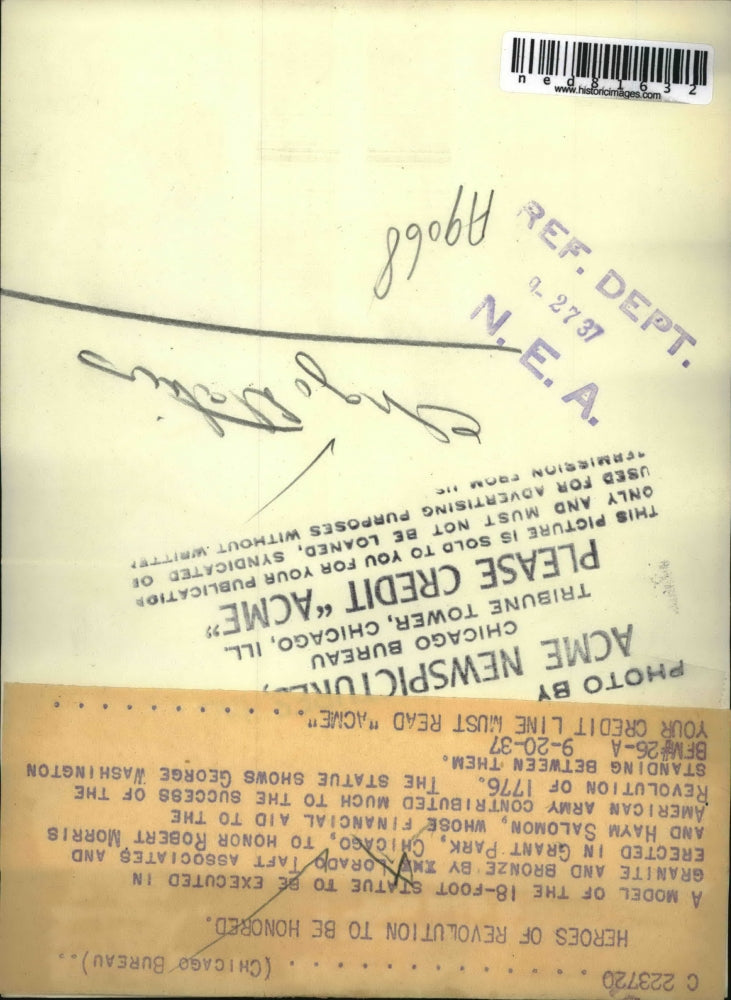 ned81632
www.historicimages.com
A9068
REF. DEPT.
9-2737
N. E. A.
Chgo Statues
C 223720 . . . . . . . . . . . . (CHICAGO BUREAU)..
HEROES OF REVOLUTION TO BE HONORED.
A MODEL OF THE 18-FOOT STATUE TO BE EXECUTED IN
GRANITE AND BRONZE BY LORADO TAFT ASSOCIATES AND
ERECTED IN GRANT PARK, CHICAGO, TO HONOR ROBERT MORRIS
AND HAYM SALOMON, WHOSE FINANCIAL AID TO THE
AMERICAN ARMY CONTRIBUTED MUCH TO THE SUCCESS OF THE
REVOLUTION OF 1776. THE STATUE SHOWS GEORGE WASHINGTON
STANDING BETWEEN THEM.
BFM#26-A 9-20-37
YOUR CREDIT LINE MUST READ "ACME". . . . . . . . . . .
PHOTO BY
ACME NEWSPICTURES,
CHICAGO BUREAU
TRIBUNE TOWER, CHICAGO, ILL.
PLEASE CREDIT "ACME"
THIS PICTURE IS SOLD TO YOU FOR YOUR PUBLICATION
ONLY AND MUST NOT BE LOANED, SYNDICATED OR
USED FOR ADVERTISING PURPOSES WITHOUT WRITTEN
PERMISSION FROM US